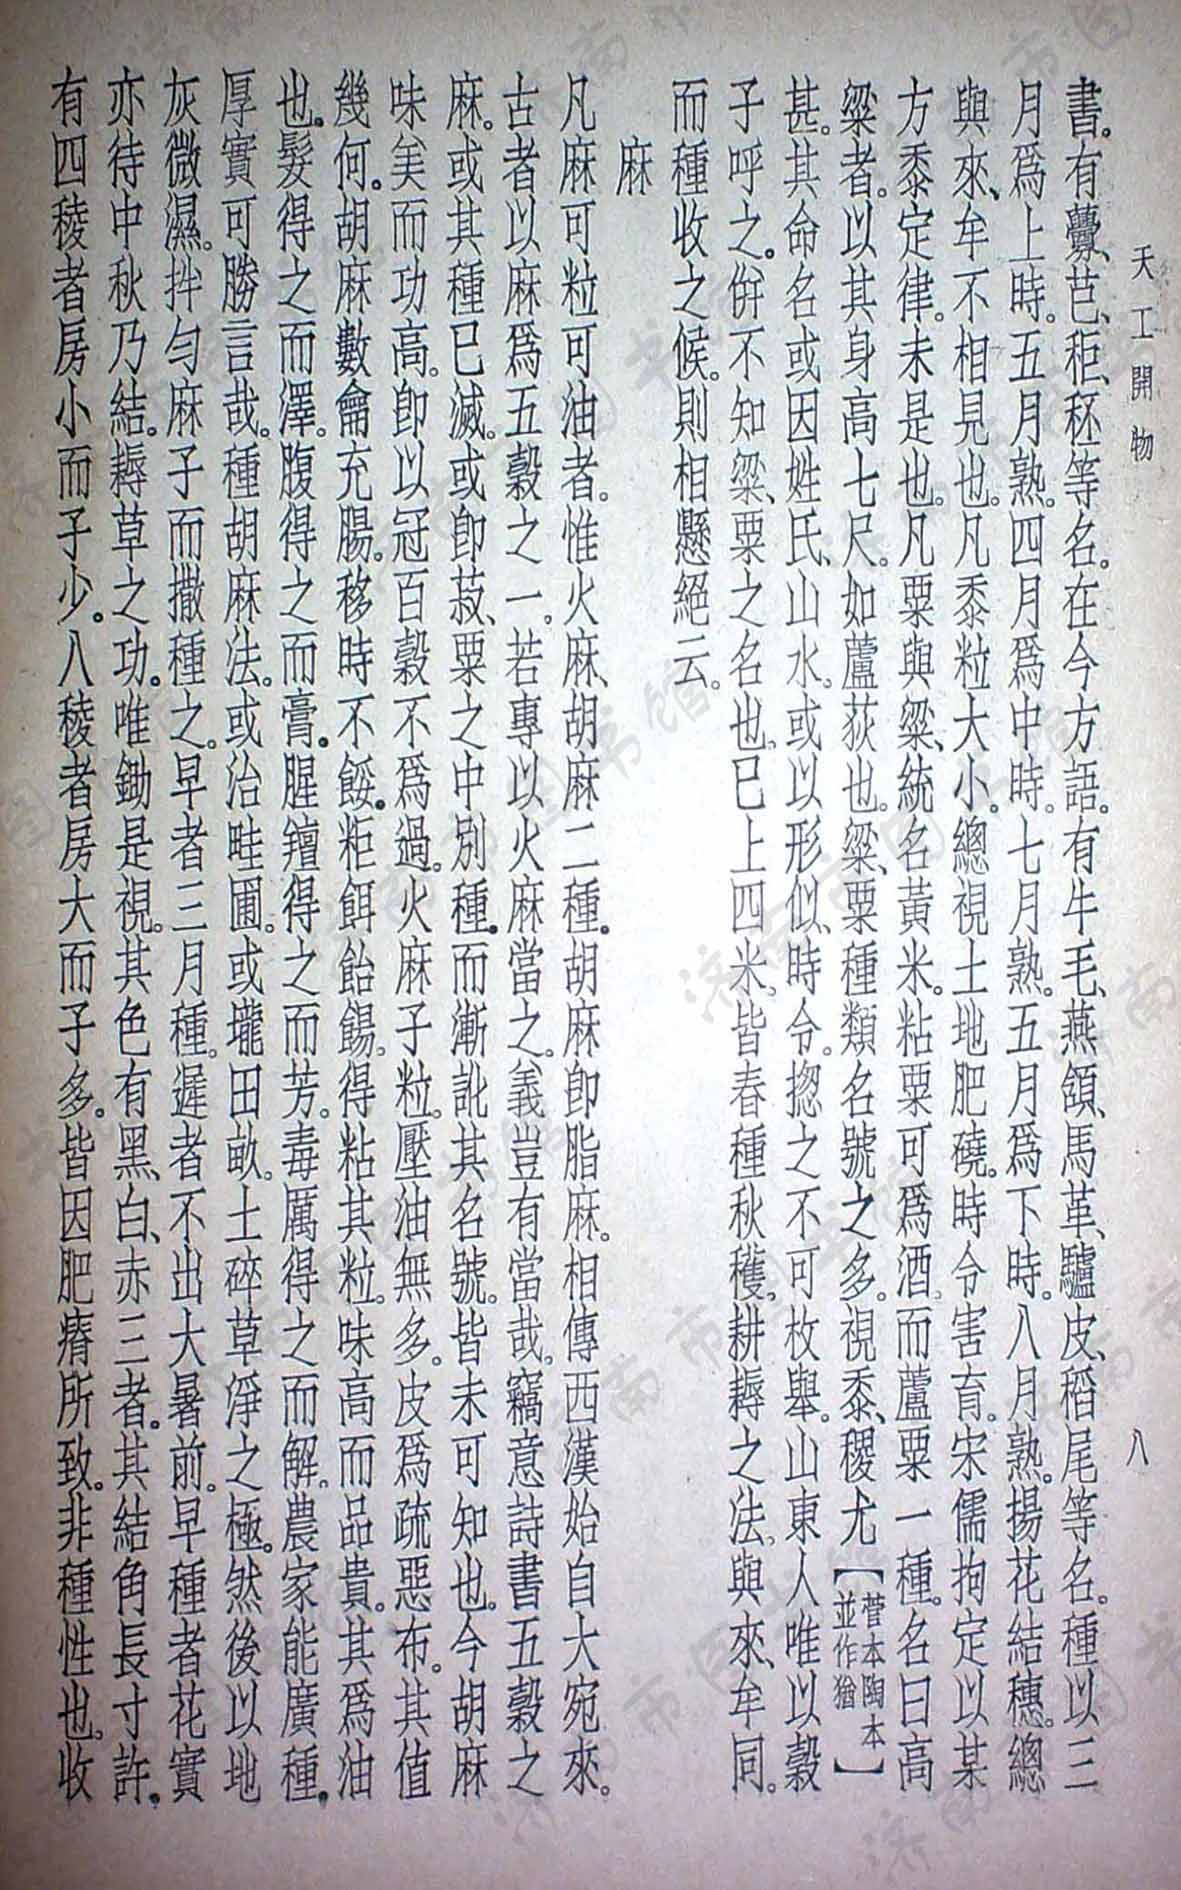 天工開物
八
書。有虋、芑、秬、秠等名。在今方語。有牛毛、燕頷、馬革、驢皮、稻尾等名。種以三
月爲上時。五月熟。四月爲中時。七月熟。五月爲下時。八月熟。揚花結穗。總
與來、牟不相見也。凡黍粒大小。總視土地肥磽。時令害育。宋儒拘定以某
方黍定律。未是也。凡粟與粱、統名黃米。粘粟可爲酒。而蘆粟一種。名曰高
粱者。以其身高七尺。如蘆荻也。粱、粟種類名號之多。視黍、稷尤【菅本陶本並作猶】
甚。其命名或因姓氏、山水。或以形似、時令。揔之不可枚舉。山東人唯以穀
子呼之。併不知粱、粟之名也。已上四米、皆春種秋穫。耕耨之法。與來、牟同。
而種收之候。則相懸絕云。
麻
凡麻可粒可油者。惟火麻、胡麻二種。胡麻卽脂麻。相傳西漢始自大宛來。
古者以麻爲五穀之一。若專以火麻當之。義豈有當哉。竊意詩書五穀之
麻。或其種已滅。或卽菽、粟之中別種。而漸訛其名號。皆未可知也。今胡麻
味美而功高。卽以冠百穀不爲過。火麻子粒。壓油無多。皮爲疏惡布。其值
幾何。胡麻數龠充腸。移時不餒。粔餌飴餳。得粘其粒。味高而品貴。其爲油
也。髮得之而澤。腹得之而膏。腥羶得之而芳。毒厲得之而解。農家能廣種。
厚實可勝言哉。種胡麻法。或治畦圃。或壠田畝。土碎草淨之極。然後以地
灰微濕。拌勻麻子而撒種之。早者三月種。遲者不出大暑前。早種者花實
亦待中秋乃結。耨草之功。唯鋤是視。其色有黑、白、赤三者。其結角長寸許。
有四稜者房小而子少。八稜者房大而子多。皆因肥瘠所致。非種性也。收
濟南市图书馆